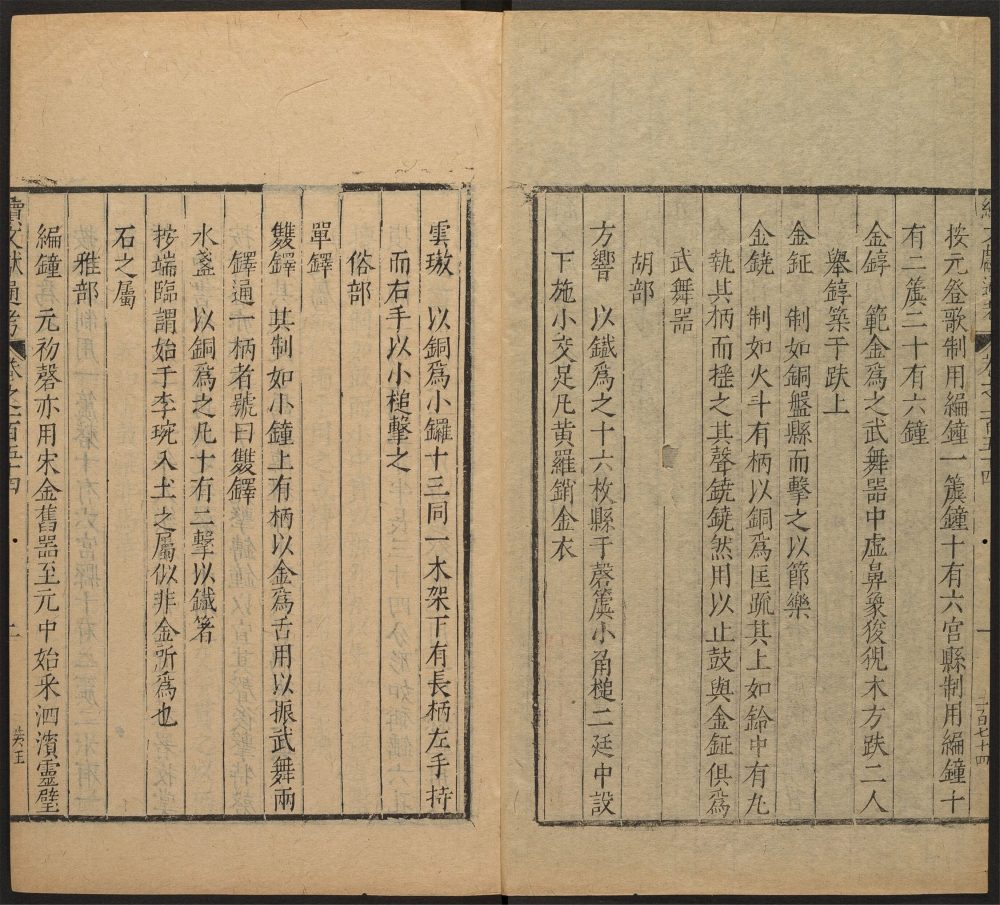 續文獻通考 卷之一百五十四 一 二百七十四
按元登歌制用編鐘一簴鐘十有六宫縣制用編鐘十
有二簴二十有六鐘
金錞 範金爲之武舞器中虛鼻象狻猊木方趺二人
舉錞築于趺上
金鉦 制如銅盤縣而擊之以節樂
金鐃 制如火斗有柄以銅爲匡疏其上如鈴中有丸
執其柄而揺之其聲鐃鐃然用以止鼓與金鉦俱爲
武舞器
胡部
方響 以鐵爲之十六枚縣于磬簴小角槌二廷中設
下施小交足几黄羅銷金衣
雲璈 以銅爲小鑼十三同一木架下有長柄左手持
而右手以小槌擊之
俗部
單鐸
雙鐸 其制如小鐘上有柄以金爲舌用以振武舞兩
鐸通一柄者號曰雙鐸
水盞 以銅爲之凡十有二擊以鐵箸
按端臨謂始于李琬入土之屬似非金所爲也
石之屬
雅部
編鐘 元初磬亦用宋金舊器至元中始采泗濱靈璧
續文獻通考 卷之一百五十四 二